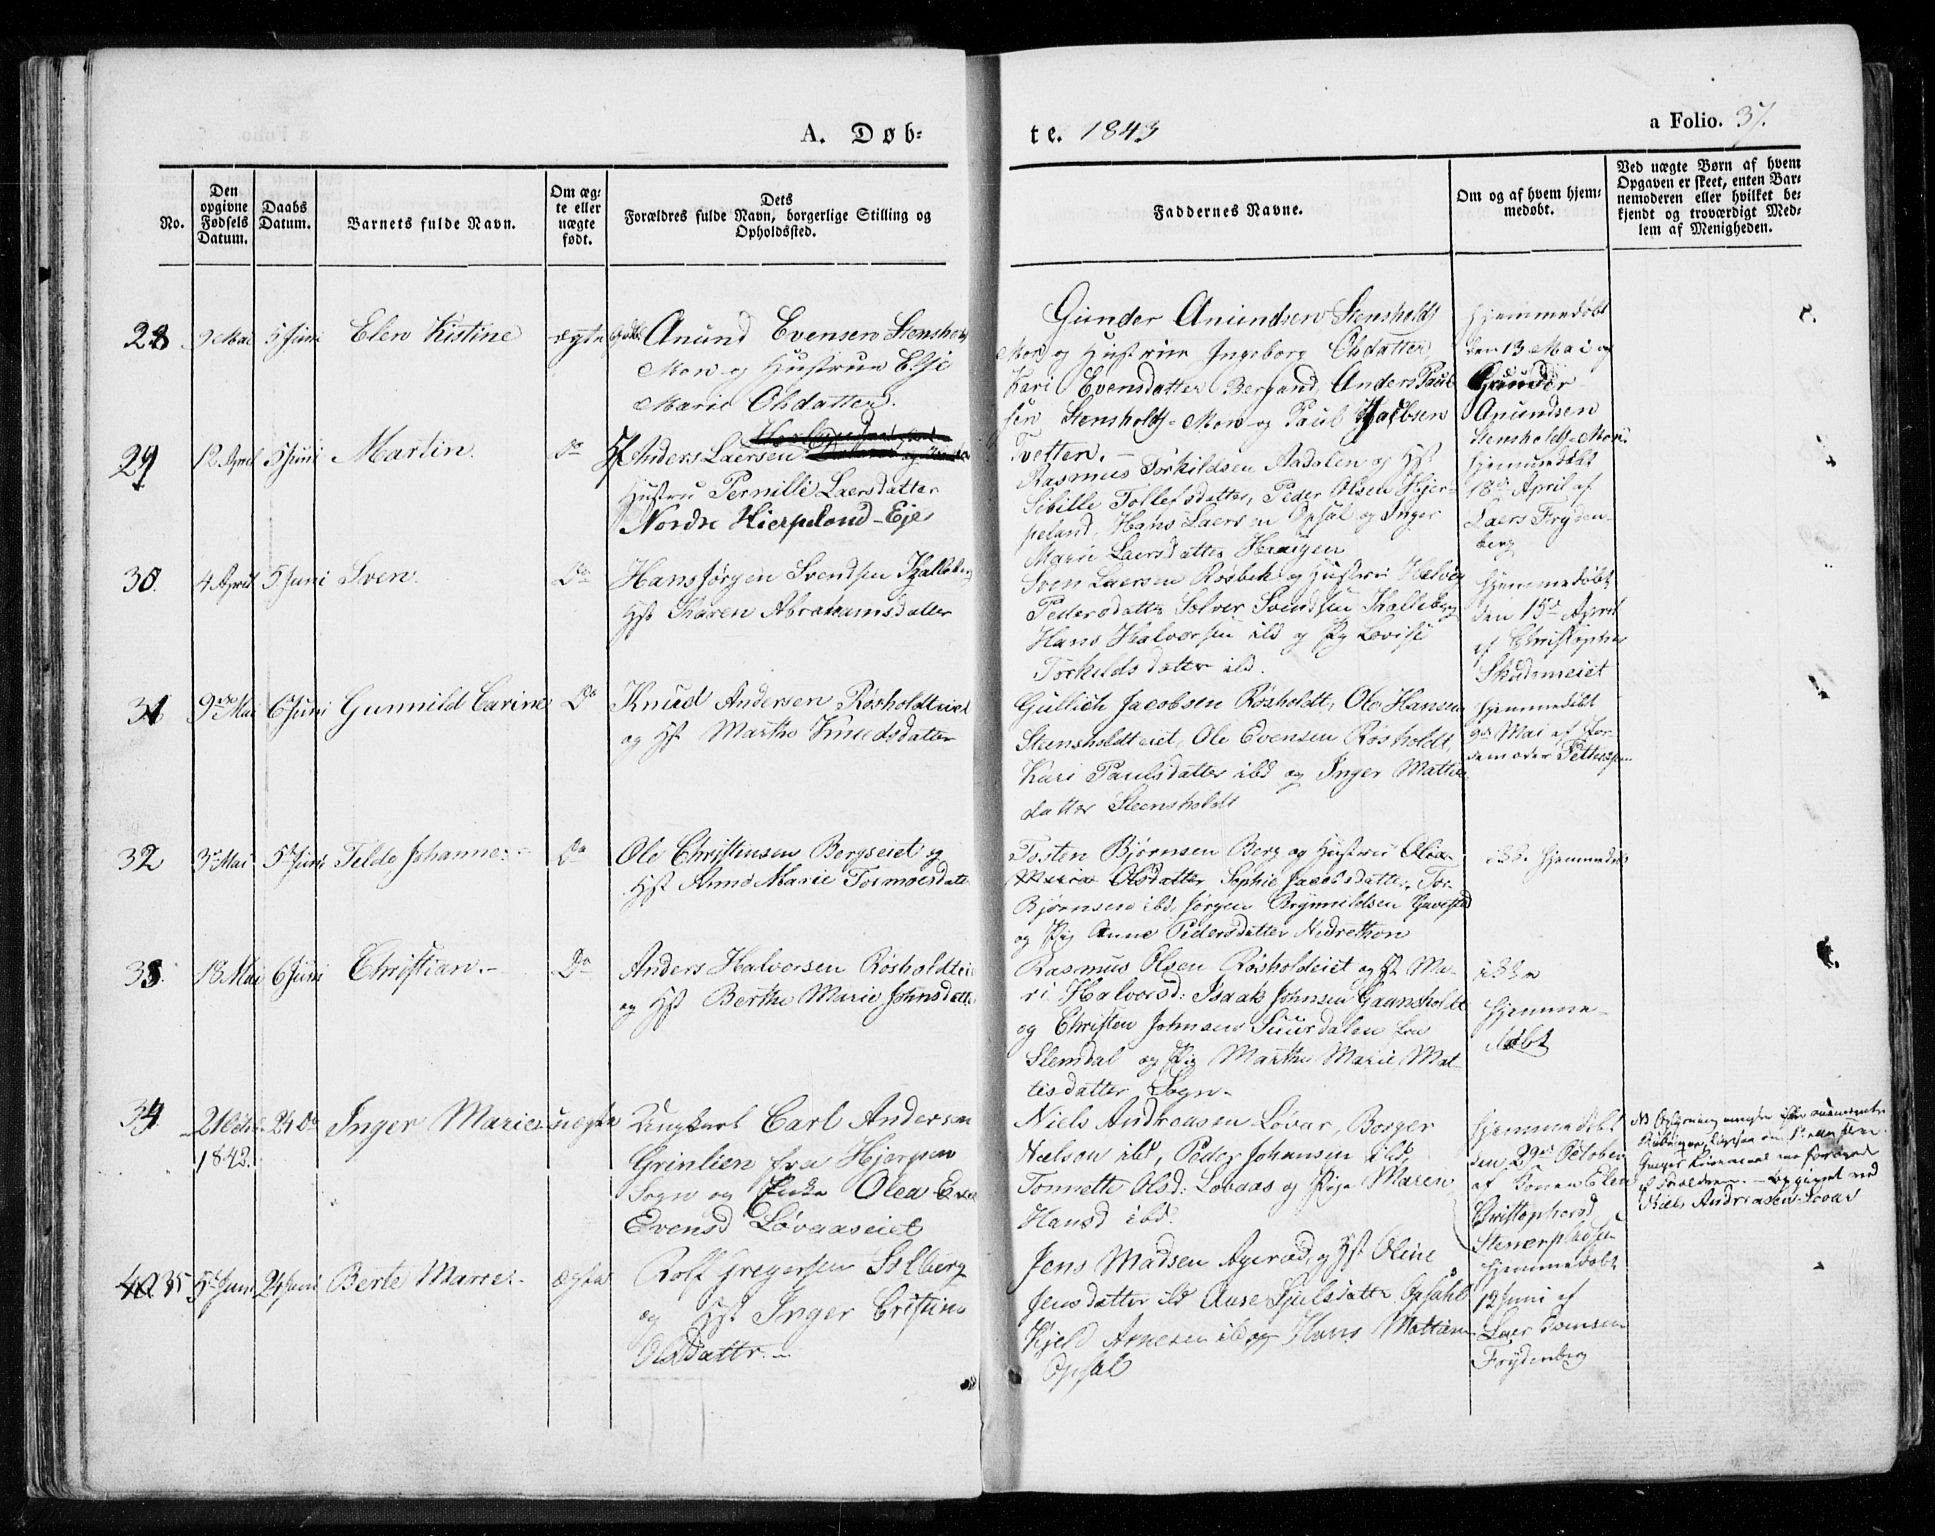 A. Døb-
te. 1843
a Folio. 37.
No.
Den opgivne Fødsels Datum.
Daabs Datum.
Barnets fulde Navn.
Om ægte eller nægte født.
Dets Forældres fulde Navn, borgerlige Stilling og Opholdssted.
Faddernes Navne.
Om og af hvem hjemmedøbt.
Ved uægte Børn af hvem Opgaven er skeet, enten Barnemoderen eller hvilket bekjendt og troværdigt Medlem af Menigheden.
28 9 Mai 5 Juni Elen Kistine ægte
Anund Evensen Stensholdt
Moen og Hustrue Elsje
Marie Olsdatter.
Gunder Anundsen Stensholdt
Moen og Hustrue Ingeborg Olsdatter
Kari Evensdatter Bergand, Anders Paul-
sen Stensholdt-Moen og Paul Jacobsen
Tvetten.
Hjemmedøbt
den 13 Mai og
Gunder
Anundsen
Stensholdt-Moen
29 12 April 5 Juni Martin. Do
Anders Laersen
Hustru Pernille Laersdatter
Nordre Hierpelund-Eje
Rasmus Torkildsen Aadalen og Hst
Sibille Tollefsdatter, Peder Olsen Hjer-
peland, Hans Laersen Opsal og Inger
Marie Laersdatter Haugen
Hjemmedøbt
18de April af
Laers Fryden-
berg
30. 4 April 5 Juni Sven. Do
Hans Jørgen Svendsen Kalleberg
Hst Karen Abrahamsdatter
Sven Laersen Røsbek og Hustrue
Pedersdatter Solver Svendsen Kalleberg
Hans Halvorsen ibd og Pig Lovise
Torkildsdatter ibd.
Hjemmedøbt
den 15de April
af Christopher
31 9de Mai 6 Juni Gunnild Carine Do
Knud Andersen Røsholdteiet
og Hst Marthe Knudsdatter
Gullich Jacobsen Røsholdt, Ole Hansen
Steensholdteiet, Ole Evensen Røsholdt,
Kari Paulsdatter ibd og Inger Mattis-
datter Steensholdt
Hjemmedøbt
9de Mai af Jor-
demoder Pettersen
32 3 Mai 5 Juni Telde Johanne. Do
Ole Christensen Bergseiet og
Hst Anne Marie Tormoesdatter
Tosten Bjørnsen Berg og Hustrue Olea
Maria Olsdatter Sophie Jacobsdatter, Tor
Bjørnsen ibd, Jørgen Brynnildsen
og Pig Anne Pedersdatter Nedrethon
ikke hjemmedøbt
33. 18 Mai 6 Juni Christian. Do
Anders Halvorsen Røsholdteiet
og Hst Berthe Marie Johnsdatter
Rasmus Olsen Røsholdteiet og Hst Ma-
ri Halvorsd: Isaak Johnsen Gaansholdt
og Christen Johnsen Suurdalen fra
Slemdal og Pig Marthe Marie Mat-
tisdatter Sogn.
ikke
hjemme-
døbt
34. 21 Octbr 1842. 24 Do Inger Marie uægte
Ungkarl Carl Andersen
Grinlien fra Hjerpen
Sogn og Enke Olea
Evensd Løvaaseiet
Niels Andreasen Løvar, Borger
Nielson ibd, Peder Johansen ibd,
Tonnette Olsd: Lovaas og Pige Maren
Hansd ibd.
Hjemmedøbt
den 29de October
af Konen Elen
Christophersd
af Forældrene. - Begivet ved
Niels Andreasen Lovar
35 5 Juni 24 Juni Berte Marie ægte
Rolf Gregersen Solberg
og Hst Inger Cristine
Olsdattr.
Jens Madsen Ageraed, og Hst Oline
Jensdatter ibd Anse Kjelsdatter Opsahl
Kjeld Arnesen ibd og Hans Mattisen
Opsal
Hjemmedøbt
12 Juni af
Laer Svensen
Frydenberg